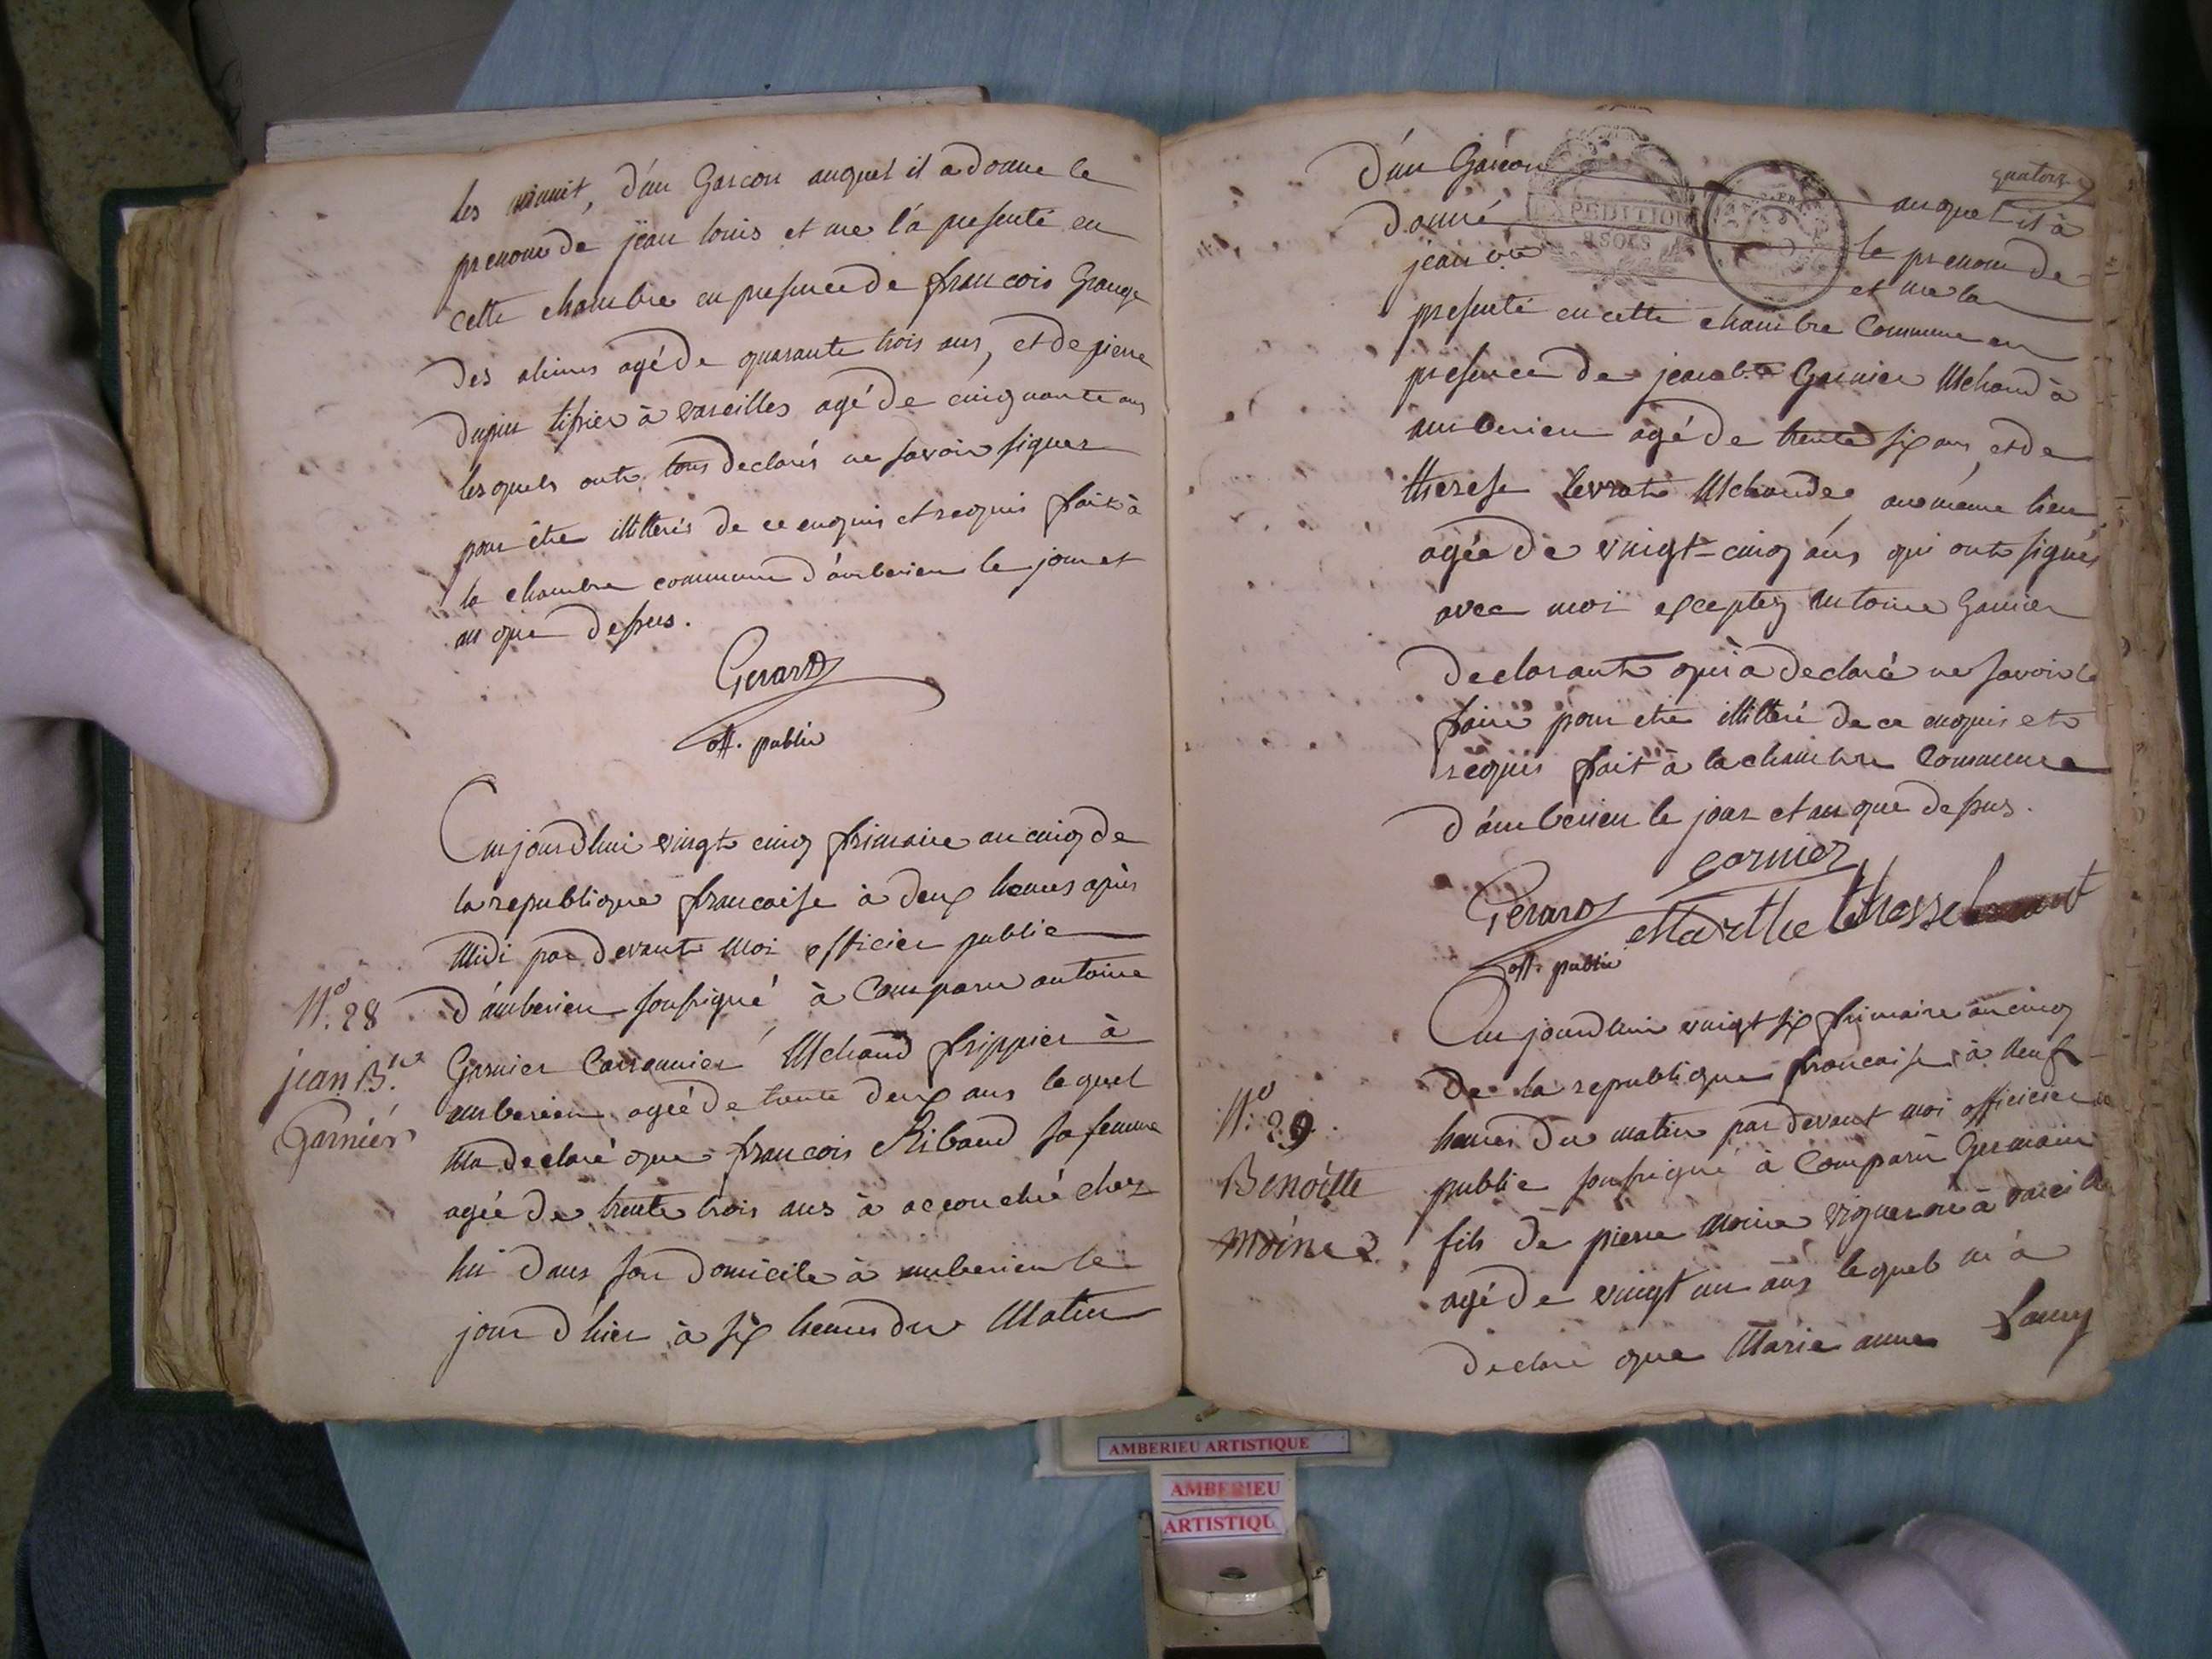 les minuit, d'un Garcon auquel il a donne le
prenom de jean louis et me l'a presenté en
cette chambre en presence de francois Grange
des alimes agé de quarante trois ans, et de pierre
dupin tissier à vareilles agé de cinquante ans
lesquels ont tous declarés ne savoir signer
pour être illitterés de ce enquis et requis fait à
la chambre commune d'amberieu le jour et
an que dessus.
Gerard
off. public
Aujourdhui vingt cinq frimaire an cinq de
la republique francaise à deux heures après
Midi par devant Moi officier public
d'amberieu soussigné à Comparu antoine
Garnier Marchand frippier à
amberieu agé de trente deux ans lequel
Ma declaré que francois Ribaud sa femme
agée de trente trois ans à accouché chez
lui dans son domicile à amberieu le
jour d'hier à six heures du Matin
N.o 28
jean B.te
Garnier
quatorze
d'un Garcon auquel il à
EXPEDITION
8 SOLS
donné le prenom de
jean bte et me la
presenté en cette chambre Commune en
presence de jean bte Garnier Mchand à
amberieu agé de trente six ans, et de
therese levrat Mchande au même lieu
agée de vingt-cinq ans qui ont signés
avec moi exceptez antoine Garnier
declarant qui à declaré ne savoir le
faire pour etre illitteré de ce enquis et
requis fait à la chambre Commune
d'amberieu le jour et an que dessus.
Gerard garnier
off. public
Aujourdhui vingt six frimaire an cinq
de la republique francaise à neuf
heures du matin par devant moi officicier
public soussigné à Comparu Germain
fils de pierre moine vigneron à vareille
agé de vingt un ans lequel m'à
declaré que Marie anne Lamy
N.o 29.
Benoitte
moine
AMBERIEU ARTISTIQUE
AMBERIEU
ARTISTIQU